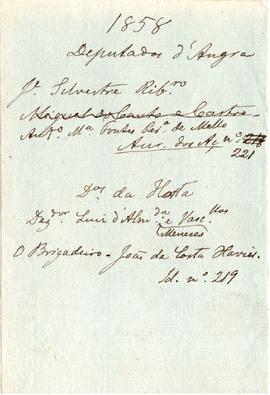 1858
Deputados d'Angra
Je Silvestre Ribro
Miguel do Canto e Castro
Anto Ma Fontes Pera de Mello
Aur. dos Aç nº. 218
221
Dos da Horta
Dezdor Luiz d'Almda e Vascllos
(Meneses
O Brigadeiro - João da Costa Xavier.
Id. nº. 219